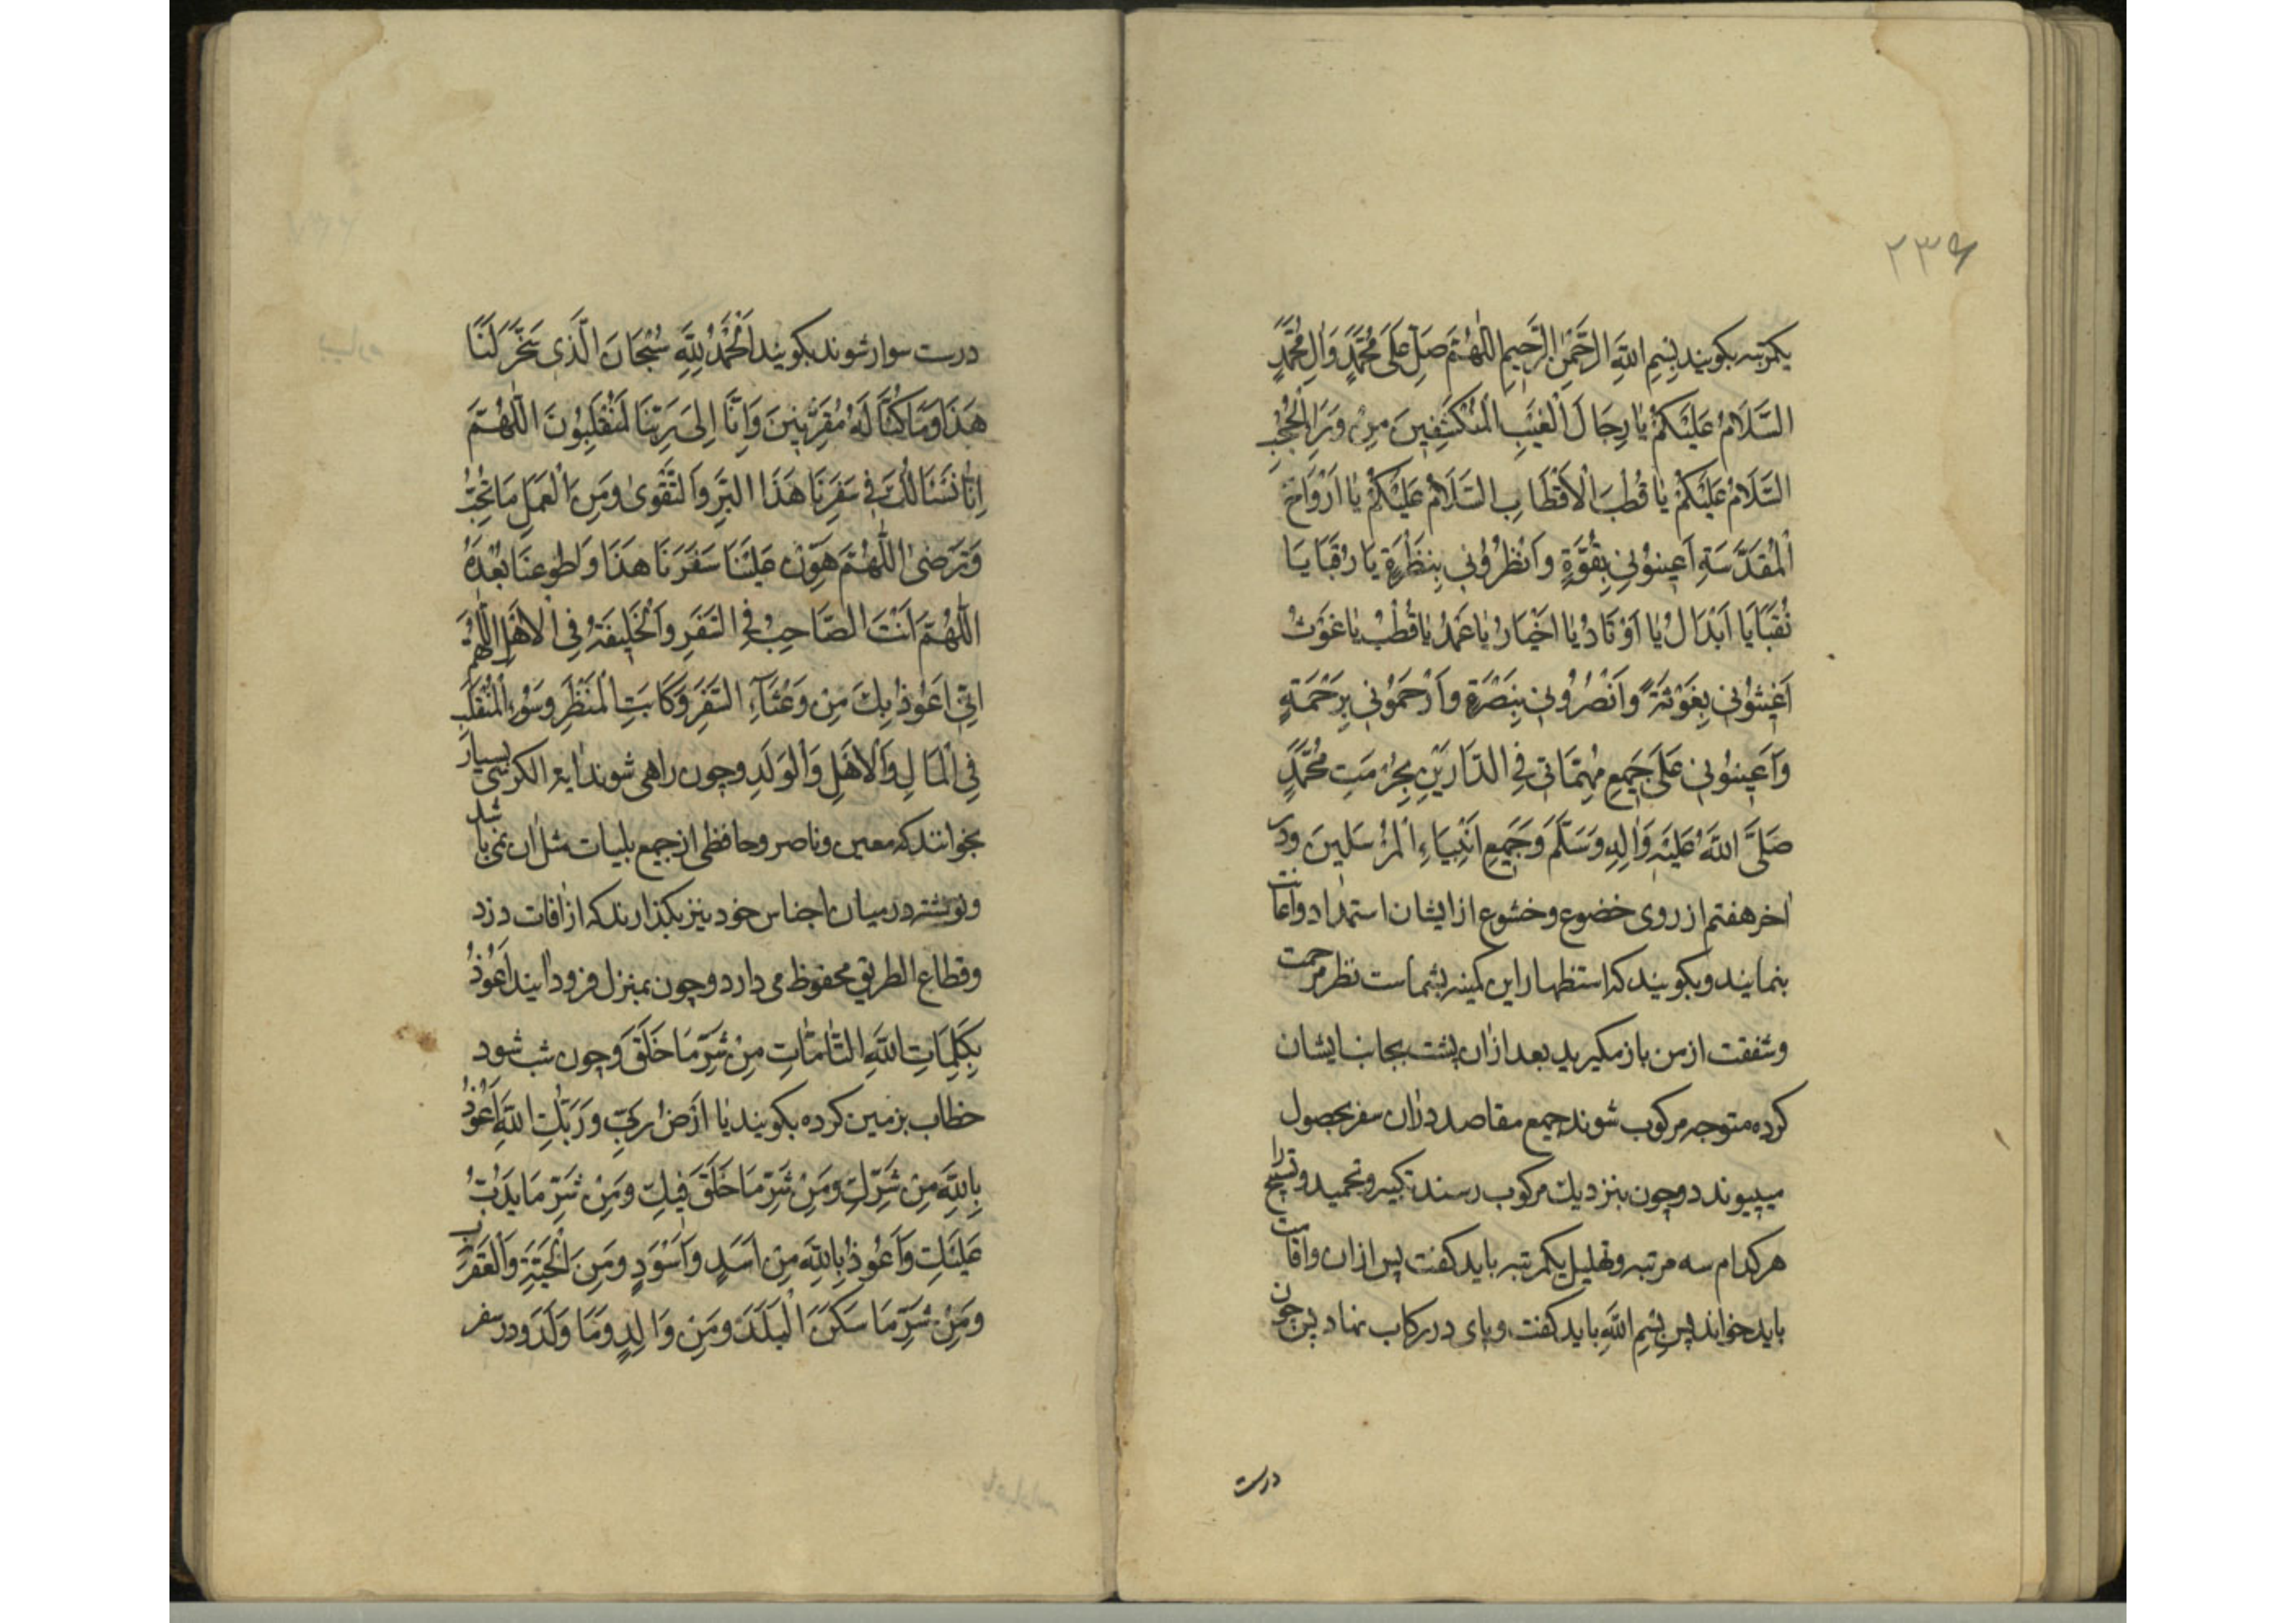 ۲۳۶
یکمرتبه بکویند بِسْمِ اللهِ الرَّحْمٰنِ الرَّحِیمِ اَللّٰهُمَّ صَلِّ عَلَی مُحَمَّدٍ وَاٰلِ مُحَمَّدٍ
السَّلَامُ عَلَیْکُمْ یَا رِجَالَ الْغَیْبِ الْمُنْکَشِفِینَ مِنْ وَرَاِ الْحُجُبِ
السَّلَامُ عَلَیْکُمْ یَا قُطْبَ الْاَقْطَابِ السَّلَامُ عَلَیْکُمْ یَا اَرْوَاحَ
الْمُقَدَّسَةِ اَعِینُونِی بِقُوَّةٍ وَاَنْظُرُونِی بِنَظْرَةٍ یَا رُقَبَا یَا
نُقَبَا یَا اَبْدَالُ یَا اَوْتَادُ یَا اَخْیَارُ یَا عَمَدُ یَا قُطْبُ یَا غَوْثُ
اَغِیثُونِی بِغَوْثَةٍ وَاَنْصُرُونِی بِنَصْرَةٍ وَاَرْحَمُونِی بِرَحْمَةٍ
وَاَعِینُونِی عَلَی جَمِیعِ مُهِمَّاتِی فِی الدَّارَیْنِ بِحُرْمَتِ مُحَمَّدٍ
صَلَّی اللهُ عَلَیْهِ وَاٰلِهِ وَسَلَّمَ وَجَمِیعِ اَنْبِیَاءِ الْمُرْسَلِینَ ودر
اخر هفتم از روی خضوع وخشوع از ایشان استمداد واعانت
بنمایند وبکویند که استظهار این کمینه بشماست نظر مرحمت
وشفقت از من باز مکیرید بعد ازان پشت بجانب ایشان
کرده متوجه مرکوب شوند جمیع مقاصد دران سفر بحصول
میپیوندد وچون بنزدیك مرکوب رسند تکبیر وتحمید وتسبیح را
هرکدام سه مرتبه وتهلیل یکمرتبه باید کفت پس اذان واقامت
باید خواند پس بِسْمِ اللهِ باید کفت وپای در رکاب نهاد پس چون
درست
درست سوار شوند بکویند اَلْحَمْدُ لِلّٰهِ سُبْحَانَ الَّذِی سَخَّرَ لَنَا
هَذَا وَمَا کُنَّا لَهُ مُقْرِنِینَ وَاِنَّا اِلَی رَبِّنَا لَمُنْقَلِبُونَ اَللّٰهُمَّ
اِنَّا نَسْئَالُكَ فِی سَفَرِنَا هَذَا الْبِرَّ وَالتَّقْوٰی وَمِنَ الْعَمَلِ مَا تُحِبُّ
وَتَرْضٰی اَللّٰهُمَّ هَوِّنْ عَلَیْنَا سَفَرَنَا هَذَا وَاَطْوِعَنَا بُعْدَهُ
اَللّٰهُمَّ اَنْتَ الصَّاحِبُ فِی السَّفَرِ وَالْخَلِیفَةُ فِی الْاَهْلِ اَللّٰهُمَّ
اِنِّی اَعُوذُ بِكَ مِنْ وَعْثَاءِ السَّفَرِ وَکَابَتِ الْمَنْظَرِ وَسُوءِ الْمُنْقَلَبِ
فِی الْمَالِ وَالْاَهْلِ وَالْوَلَدِ وچون راهی شوند ایة الکرسی بسیار
بخوانند که معین وناصر وحافظی از جمیع بلیات مثل ان نمی باشد
ونوشته در میان اجناس خود نیز بکذارند که از افات دزد
وقطاع الطریق محفوظ می دارد وچون بمنزل فرود ایند اَعُوذُ
بِکَلِمَاتِ اللهِ التَّامَّاتِ مِنْ شَرِّ مَا خَلَقَ وچون شب شود
خطاب بزمین کرده بکویند یَا اَرْضُ رَبِّی وَرَبُّكِ اللهِ اَعُوذُ
بِاللهِ مِنْ شَرِّكِ وَمِنْ شَرِّ مَا خَلَقَ فِیكِ وَمِنْ شَرِّ مَا یَدُبُّ
عَلَیْكِ وَاَعُوذُ بِاللهِ مِنْ اَسَدٍ وَاَسْوَدٍ وَمِنَ الْحَیَّةِ وَالْعَقْرَبِ
وَمِنْ شَرِّ مَا سَکَنَ الْبَلَدَ وَمِنْ وَالِدٍ وَمَا وَلَدَ ودر سفر